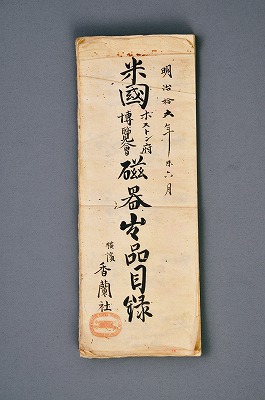 明治拾六年未六月
米國ボストン府博覧會磁器出品目録
横濱
香蘭社